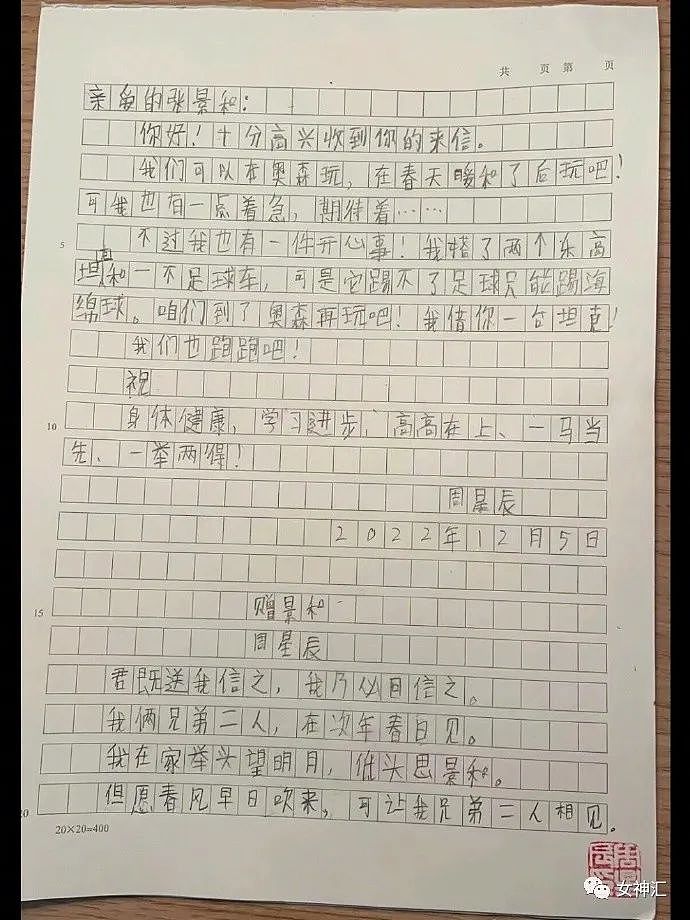 共 页 第 页
亲爱的张景和：
你好！十分高兴收到你的来信。
我们可以在奥森玩，在春天暖和了后玩吧！
可我也有一点着急，期待着……
5
不过我也有一件开心事！我搭了两个乐高
坦克和一不足球车，可是它踢不了足球只能踢海
绵球。咱们到了奥森再玩吧！我借你一台坦克！
我们也跑跑吧！
祝
10
身体健康，学习进步，高高在上、一马当
先、一举两得！
周星辰
2022年12月5日
15
赠景和
周星辰
君既送我信之，我乃必回信之。
我俩兄弟二人，在次年春日见。
我在家举头望明月，低头思景和。
但愿春风早日吹来，可让我兄弟二人相见。
20
20×20=400
女神汇